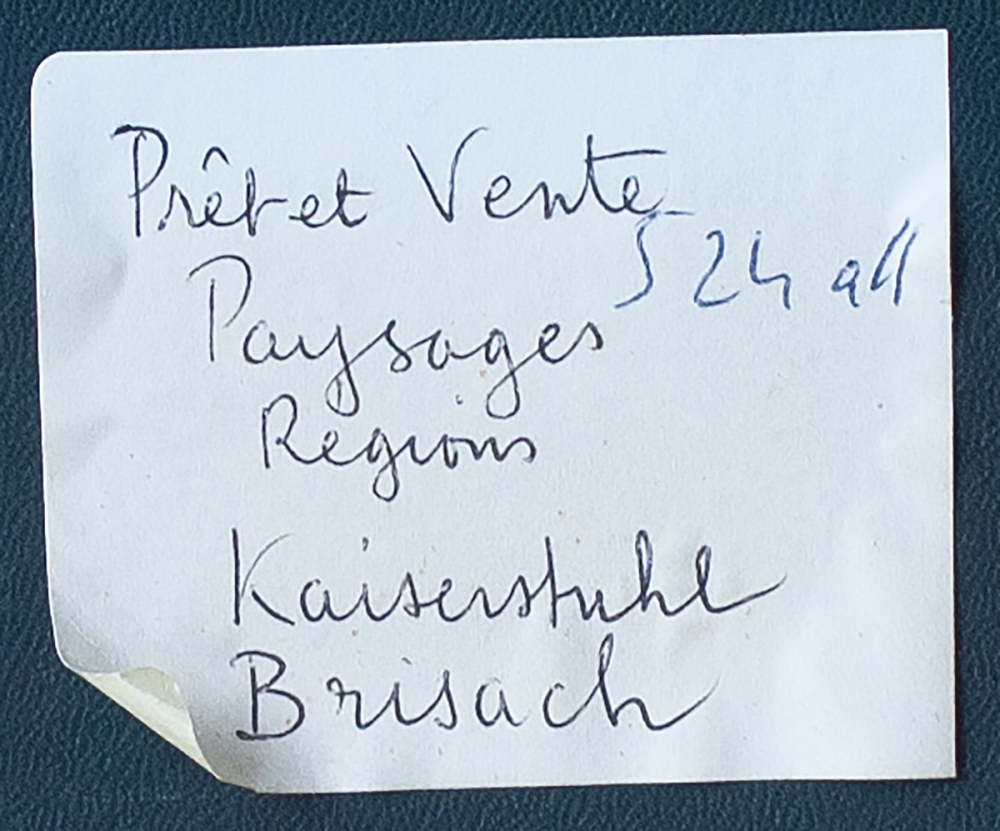 Prêt et Vente
524 all
Paysages
Regions
Kaiserstuhl
Brisach